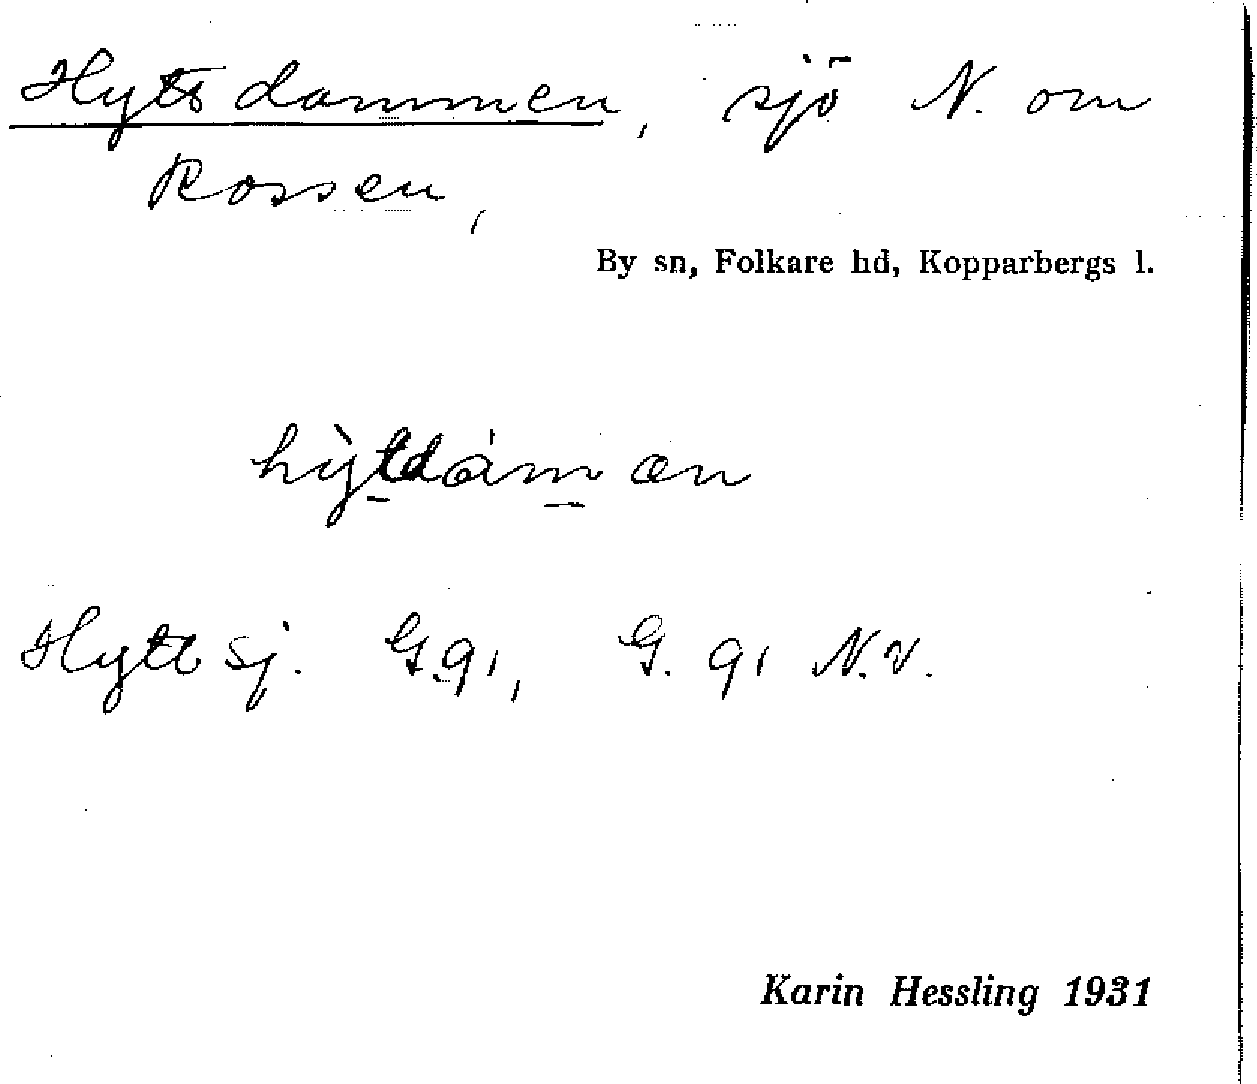 Hyttdammen, sjö N. om
Rossen,
By sn, Folkare hd, Kopparbergs l.
hỳtdám æn
Hyttsj. G.91, G. 91 N.V.
Karin Hessling 1931